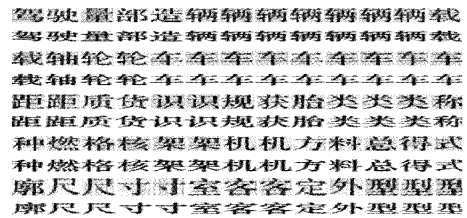 驾驶量部造辆辆辆辆辆辆辆载
驾驶量部造辆辆辆辆辆辆辆载
载轴轮轮车车车车车车车车车
载轴轮轮车车车车车车车车车
距距质货识识规获胎类类类称
距距质货识识规获胎类类类称
种燃格核架架机机方料总得式
种燃格核架架机机方料总得式
廓尺尺寸寸室客客定外型型型
廓尺尺寸寸室客客定外型型型